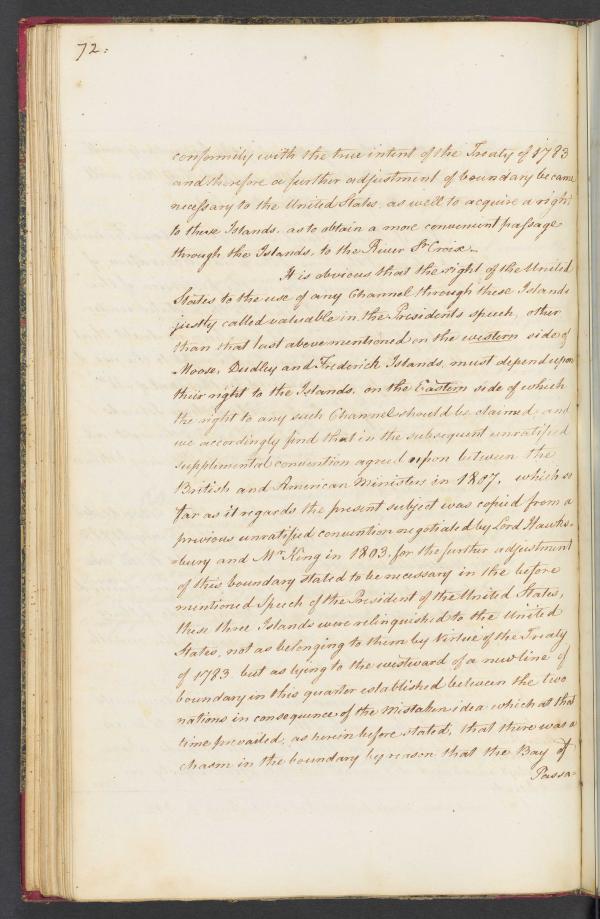 72:
conformity with the true intent of the Treaty of 1783
and therefore a further adjustment of boundary became
necessary to the United States, as well to acquire a right
to these Islands, as to obtain a more convenient passage
through the Islands, to the River St Croix.
It is obvious that the right of the United
States to the use of any Channel through these Islands
justly called valuable in the Presidents speech, other
than that last above mentioned on the western side of
Moose, Dudley and Frederick Islands, must depend upon
their right to the Islands, on the Eastern side of which
the right to any such Channel should be claimed, and
we accordingly find that in the subsequent unratified
supplemental convention agreed upon between the
British and American Ministers in 1807, which so
far as it regards the present subject was copied from a
previous unratified convention negotiated by Lord Hawks-
-bury and Mr King in 1803, for the further adjustment
of this boundary stated to be necessary in the before
mentioned Speech of the President of the United States,
these three Islands were relinquished to the United
States, not as belonging to them by virtue of the Treaty
of 1783 but as lying to the westward of a new line of
boundary in this quarter established between the two
nations in consequence of the mistaken idea which at that
time prevailed, as herein before stated, that there was a
chasm in the boundary by reason that the Bay of
Passa-